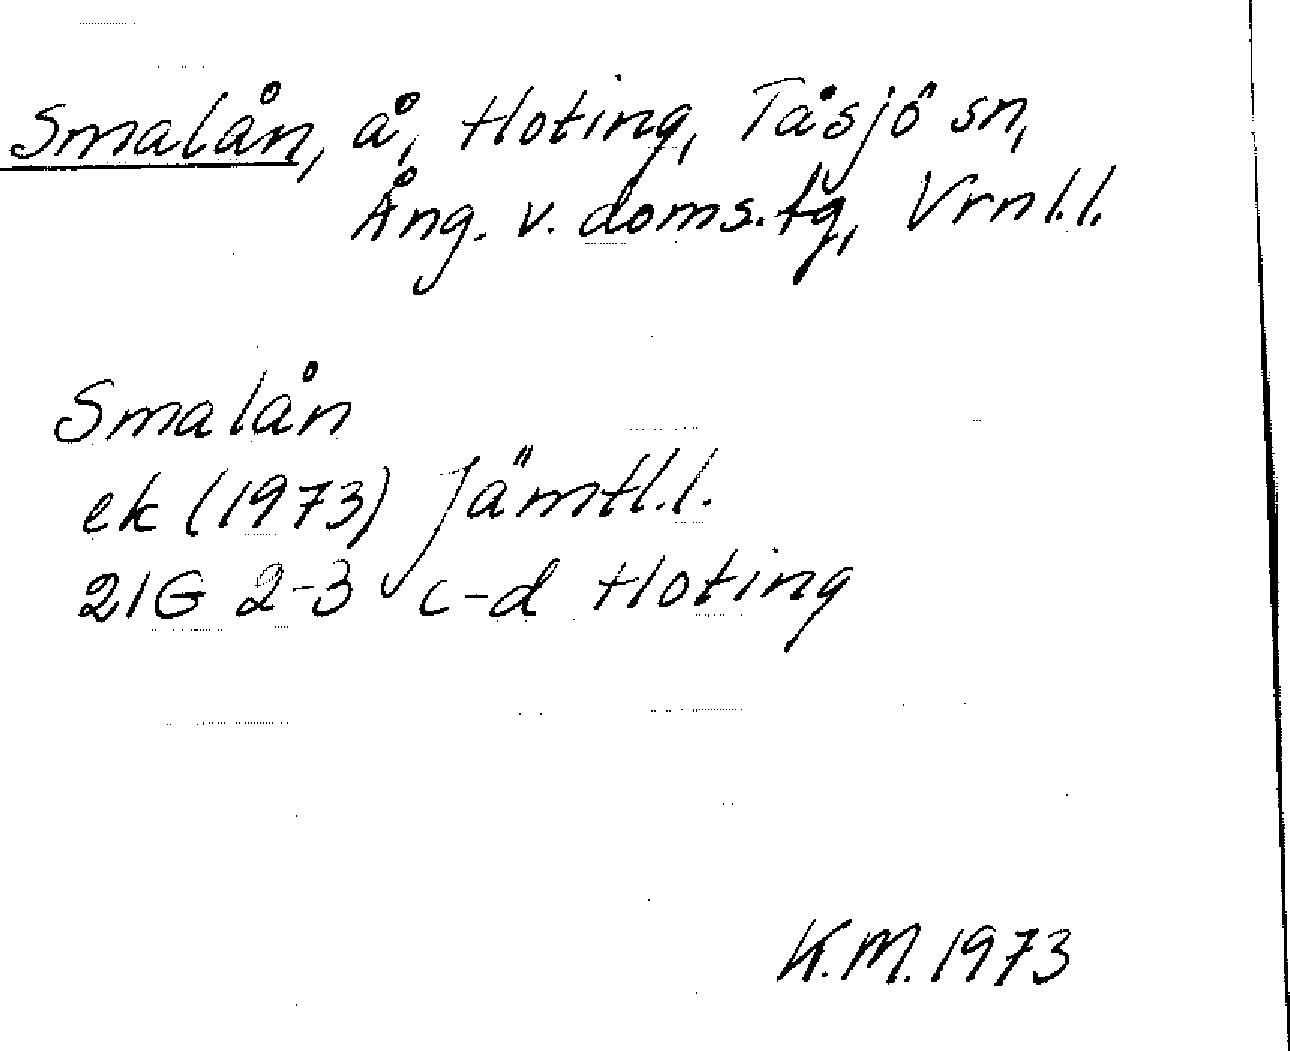 Smalån, å, Hoting, Tåsjö sn,
Ång. v. doms.tg, Vrnl.l.
Smalån
ek (1973) Jämtl.l.
21G 2-3 c-d Hoting
K.M. 1973